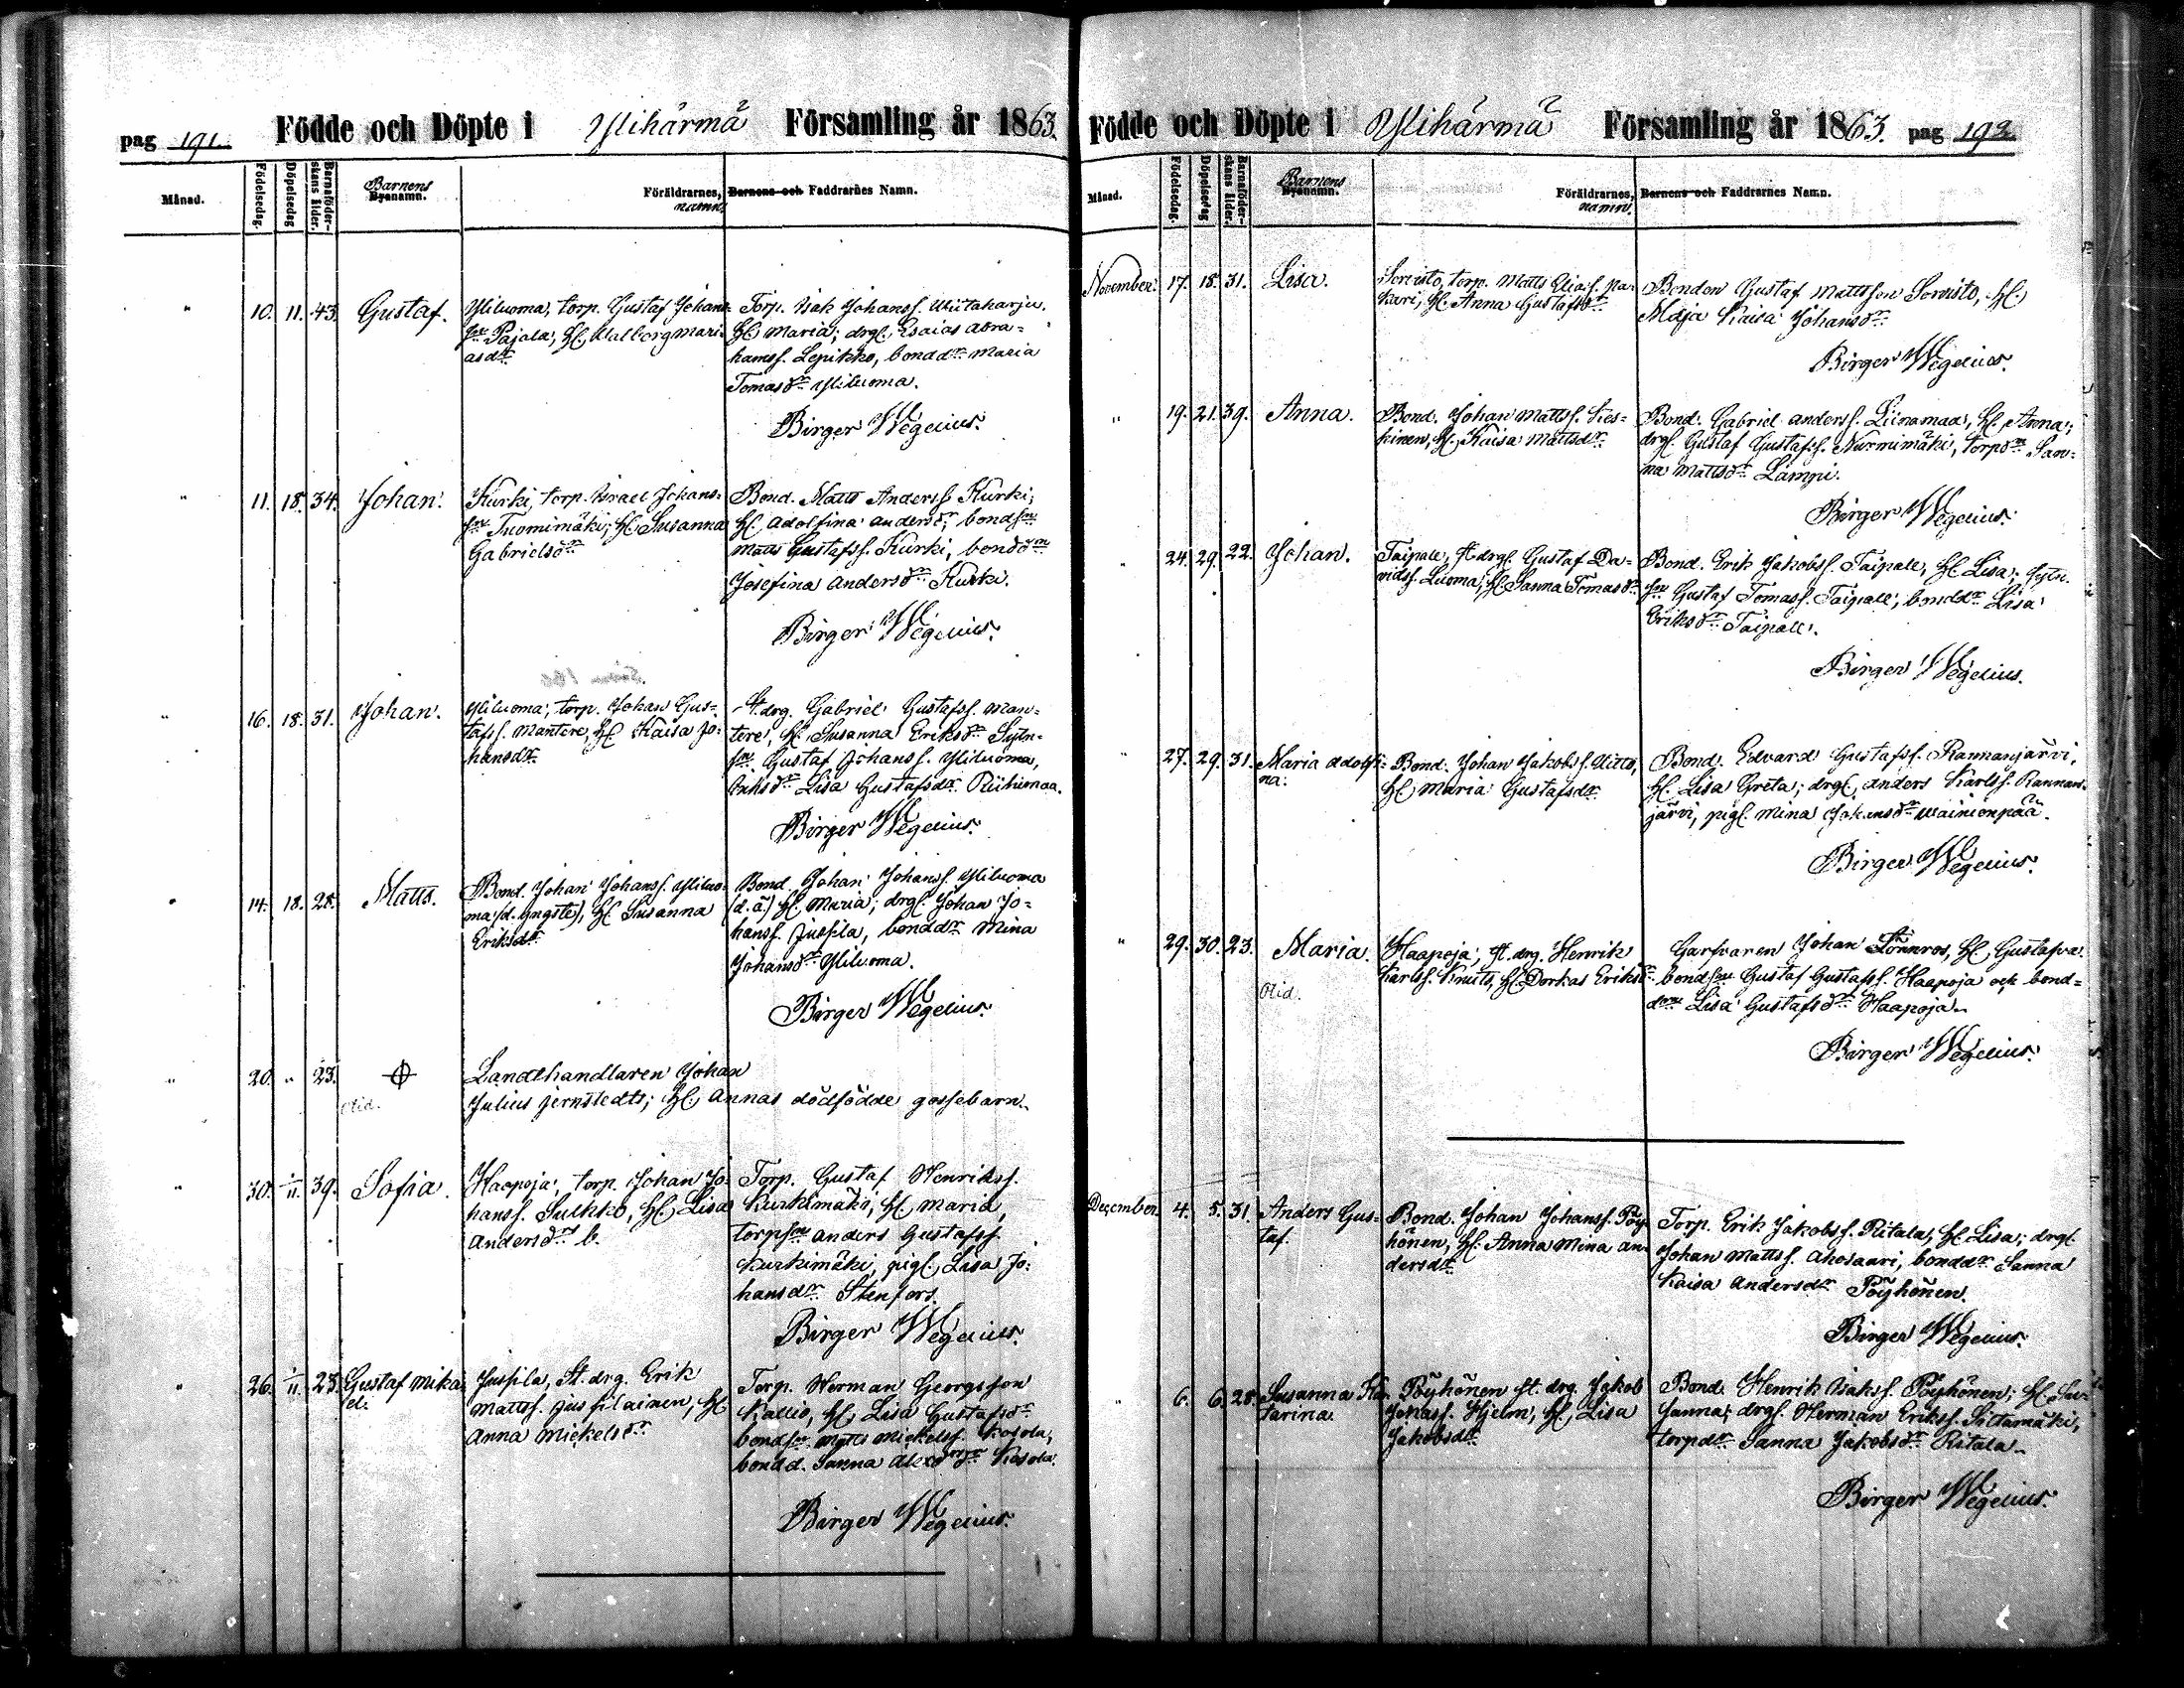 pag 191. Födde och Döpte i Ylihärmä Församling år 1863.
Månad. Födelsedag. Döpelsedag Barnaföderskans ålder. Barnens Byanamn. Föräldrarnes, namn. Barnens och Faddrarnes Namn.
" 10. 11. 43. Gustaf. Yliluoma, torp. Gustaf Johans-
son Pajala, H. Walborg Mari-
asdr
Torp. Isak Johanss. Wiitaharju.
H. Maria; drgl. Esaias Abra-
hamss. Lepikko, bonddn Maria
Tomasdr Yliluoma.
Birger Wegelius.
" 11. 18. 34. Johan. Kurki, torp. Israel Johans-
son Tuomimäki; H. Susanna
Gabrielsdr
Bond. Matts Anderss Kurki;
H. Adolfina Andersdr, bondsn
Matts Gustafss. Kurki, bonddn
Josefina Andersdr Kurki.
Birger Wegelius.
" 16. 18. 31. Johan. Yliluoma, torp. Johan Gus-
tafs. Mantere, H. Kaisa Jo-
hansdr
St.drg. Gabriel Gustafss. Man-
tere, H. Susanna Eriksdr Sytn-
sn Gustaf Johanss. Yliluoma,
Lisa Gustafsdr Riihimaa.
Birger Wegelius.
" 14. 18. 28. Matts. Bond. Johan Johanss. Yliluo-
ma (d. yngste), H. Susanna
Eriksdr
Bond. Johan Johanss. Yliluoma
(d.ä) H. Maria; drgl. Johan Jo-
hanss. Jussila, bonddr Mina
Johansdr Yliluoma.
Birger Wegelius.
" 20. " 23. Olid. Landthandlaren Johan
Julius Jernstedts; H. Annas dödfödde gossebarn.
" 30. 1/11. 39. Sofia. Haapoja, torp. Johan Jo-
hanss. Sulkko, H. Lisa
Andersdr b.
Torp. Gustaf Henrikss.
Kurkimäki, H. Maria,
torpsn Anders Gustafss.
Kurkimäki, pigl. Lisa Jo-
hansdr Stenfors.
Birger Wegelius.
" 26. 1/11. 23. Gustaf Mika-
el. Jussila, St.drg. Erik
Mattss. Jussilainen, H.
Anna Mickelsdr
Torp. Herman Georgsson
Kallio, H. Lisa Gustafsdr
bondsn Matts Mickelss. Kojola,
bondd. Sanna Kojola.
Birger Wegelius.
Födde och Döpte i Ylihärmä Församling år 1863. pag 192.
Månad. Födelsedag. Döpelsedag Barnaföderskans ålder. Barnens Byanamn. Föräldrarnes, namn. Barnens och Faddrarnes Namn.
November. 17. 18. 31. Lisa. Sorvisto, torp. Matts Elias. Pa-
kari, H. Anna Gustafsdr
Bonden Gustaf Mattsson Sorvisto, H.
Maja Kaisa Johansdr
Birger Wegelius.
" 19. 21. 39. Anna. Bond. Johan Mattss. Kes-
kinen, H. Kaisa Mattsdr
Bond. Gabriel Anderss. Liinamaa, H. Anna;
drgl. Gustaf Gustafss. Nurmimäki, torpdn San-
na Mattsdr Lampi.
Birger Wegelius.
" 24. 29. 22. Johan. Taipale, st.drgl. Gustaf Da-
vidss. Luoma, H. Sanna Tomasdr
Bond. Erik Jakobss. Taipale, H. Lisa; sytn.
sn Gustaf Tomass. Taipale, bonddr Lisa
Eriksdr Taipale.
Birger Wegelius.
" 27. 29. 31. Maria Adolfi-
na. Bond. Johan Jakobss. Uitto,
H. Maria Gustafsdr
Bond. Edvard Gustafss. Rannanjärvi,
H. Lisa Greta; drgl. Anders Karlss. Rannan-
järvi, pigl. Mina Johansdr Wainionpää.
Birger Wegelius.
" 29. 30. 23. Maria. Olid. Haapoja, st.drg. Henrik
Karlss. Knuts, H. Dorkas Eriksdr
Garfvaren Johan Lönnros, H. Gustafva.
bondsn Gustaf Gustafss. Haapoja och bond-
dn Lisa Gustafsdr Haapoja.
Birger Wegelius.
December. 4. 5. 31. Anders Gus-
taf. Bond. Johan Johanss. Pöy-
hönen, H. Anna Mina An-
dersdr
Torp. Erik Jakobss. Ritala, H. Lisa; drgl.
Johan Mattss. Ahosaari, bonddr Sanna
Kaisa Andersdr Pöyhönen.
Birger Wegelius.
" 6. 6. 28. Susanna Ka-
tarina. Pöyhönen st.drg. Jakob
Jonass. Hjelm, H. Lisa
Jakobsdr
Bond. Henrik Isakss. Pöyhönen; H. Su-
sanna; drgl. Herman Erikss. Siltamäki,
torpdr Sanna Jakobsdr Ritala.
Birger Wegelius.